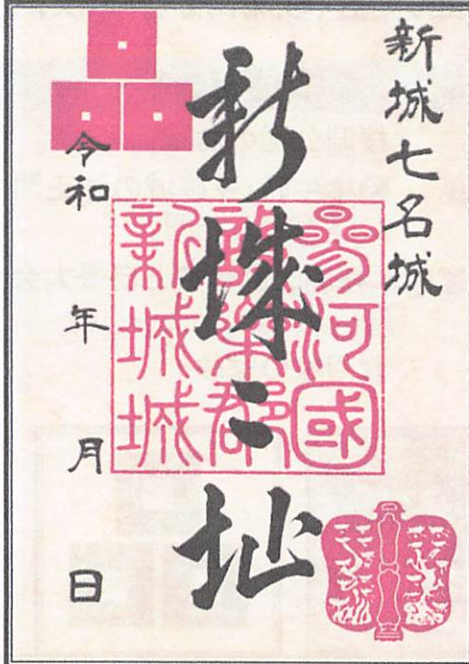 新城七名城
新城〻址
參河國
設樂郡
新城城
令和 年 月 日